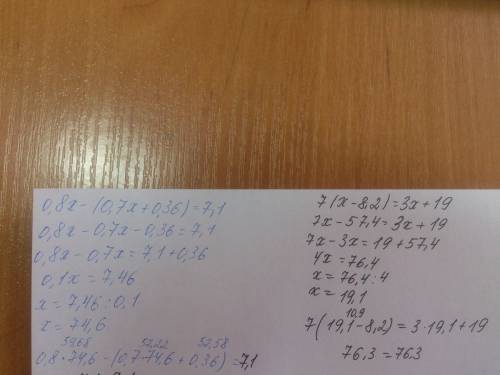 0,8x-(0,7x+0,36)=7,1
0,8x-0,7x-0,36=7,1
0,8x-0,7x=7,1+0,36
0,1x=7,46
x=7,46:0,1
x=74,6
59,68 52,22 52,58
0,8*74,6-(0,7*74,6+0,36)=7,1
7(x-8,2)=3x+19
7x-57,4=3x+19
7x-3x=19+57,4
4x=76,4
x=76,4:4
x=19,1
10,9
7(19,1-8,2)=3·19,1+19
76,3=76,3